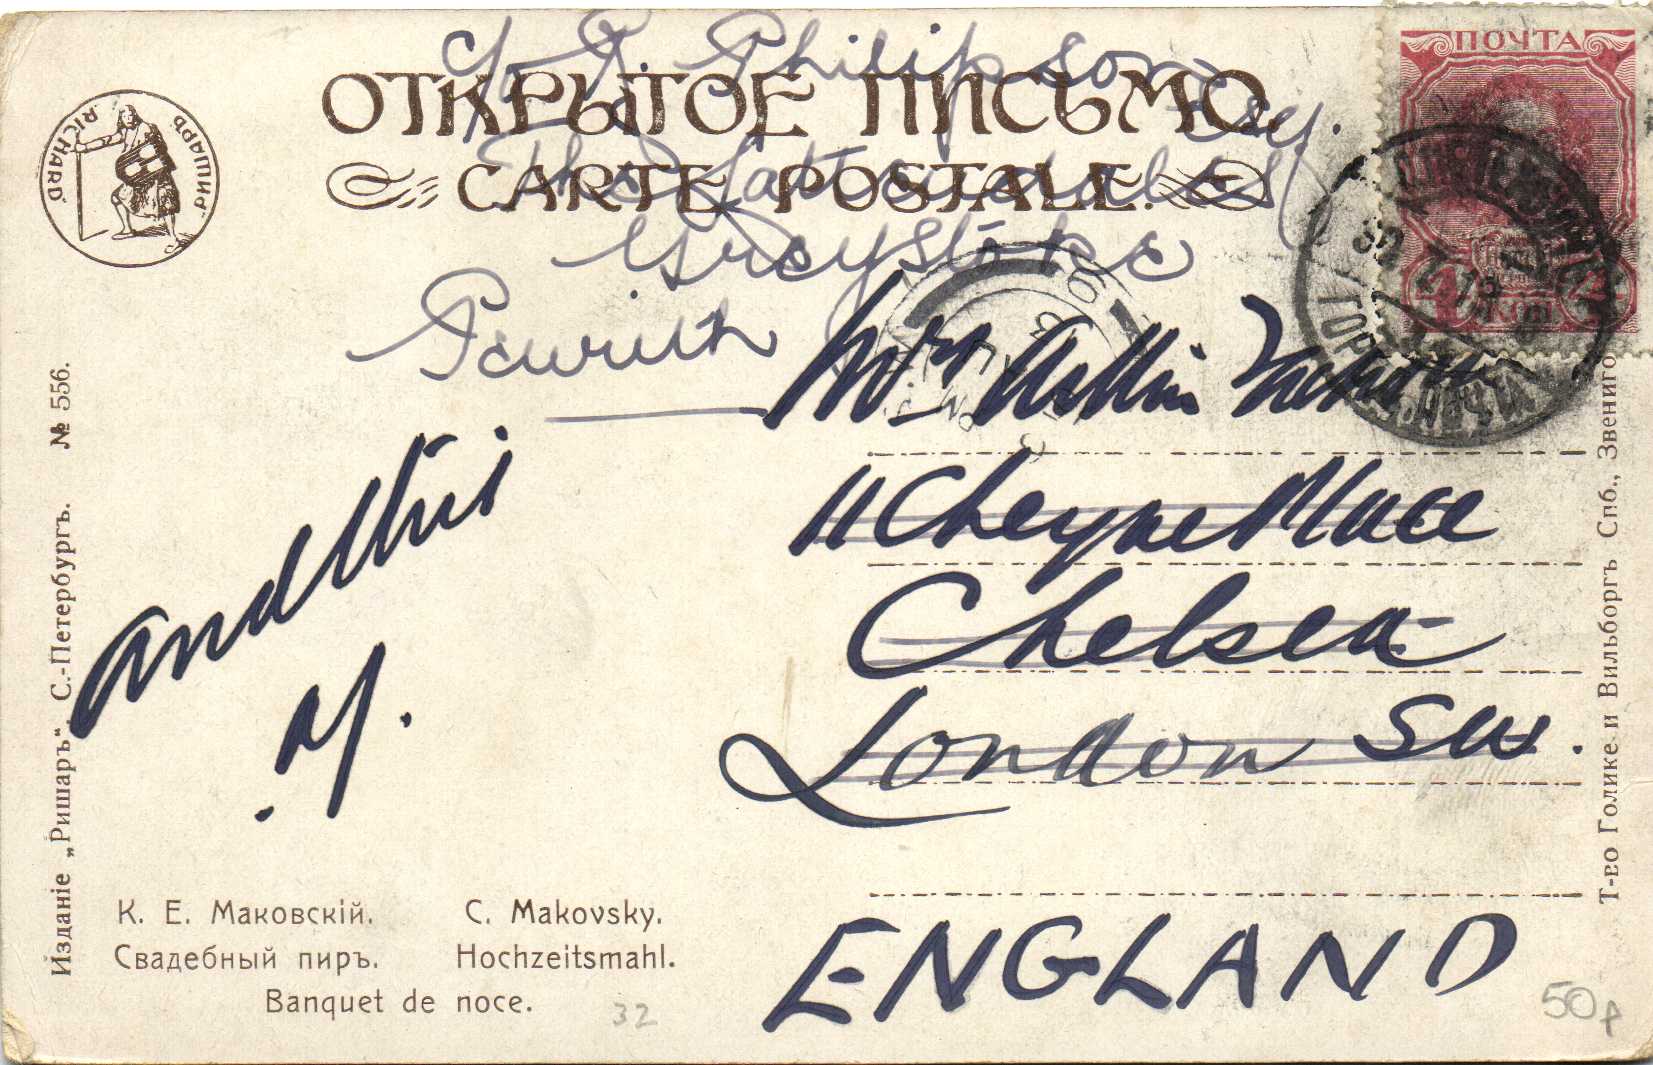 c/o Philipson Esq.
ОТКРЫТОЕ ПИСЬМО.
CARTE POSTALE.
Greystoke
Penrith
ПОЧТА
4 КОП 4
РИШАРЪ
RICHARD
Mrs
11 Cheyne Place
Chelsea
London SW.
ENGLAND
and this
Изданіе „Ришаръ“. С.-Петербургъ. № 556.
Т-во Голике и Вильборгъ Спб., Звениго
К. Е. Маковскій. C. Makovsky.
Свадебный пиръ. Hochzeitsmahl.
Banquet de noce.
32
50p